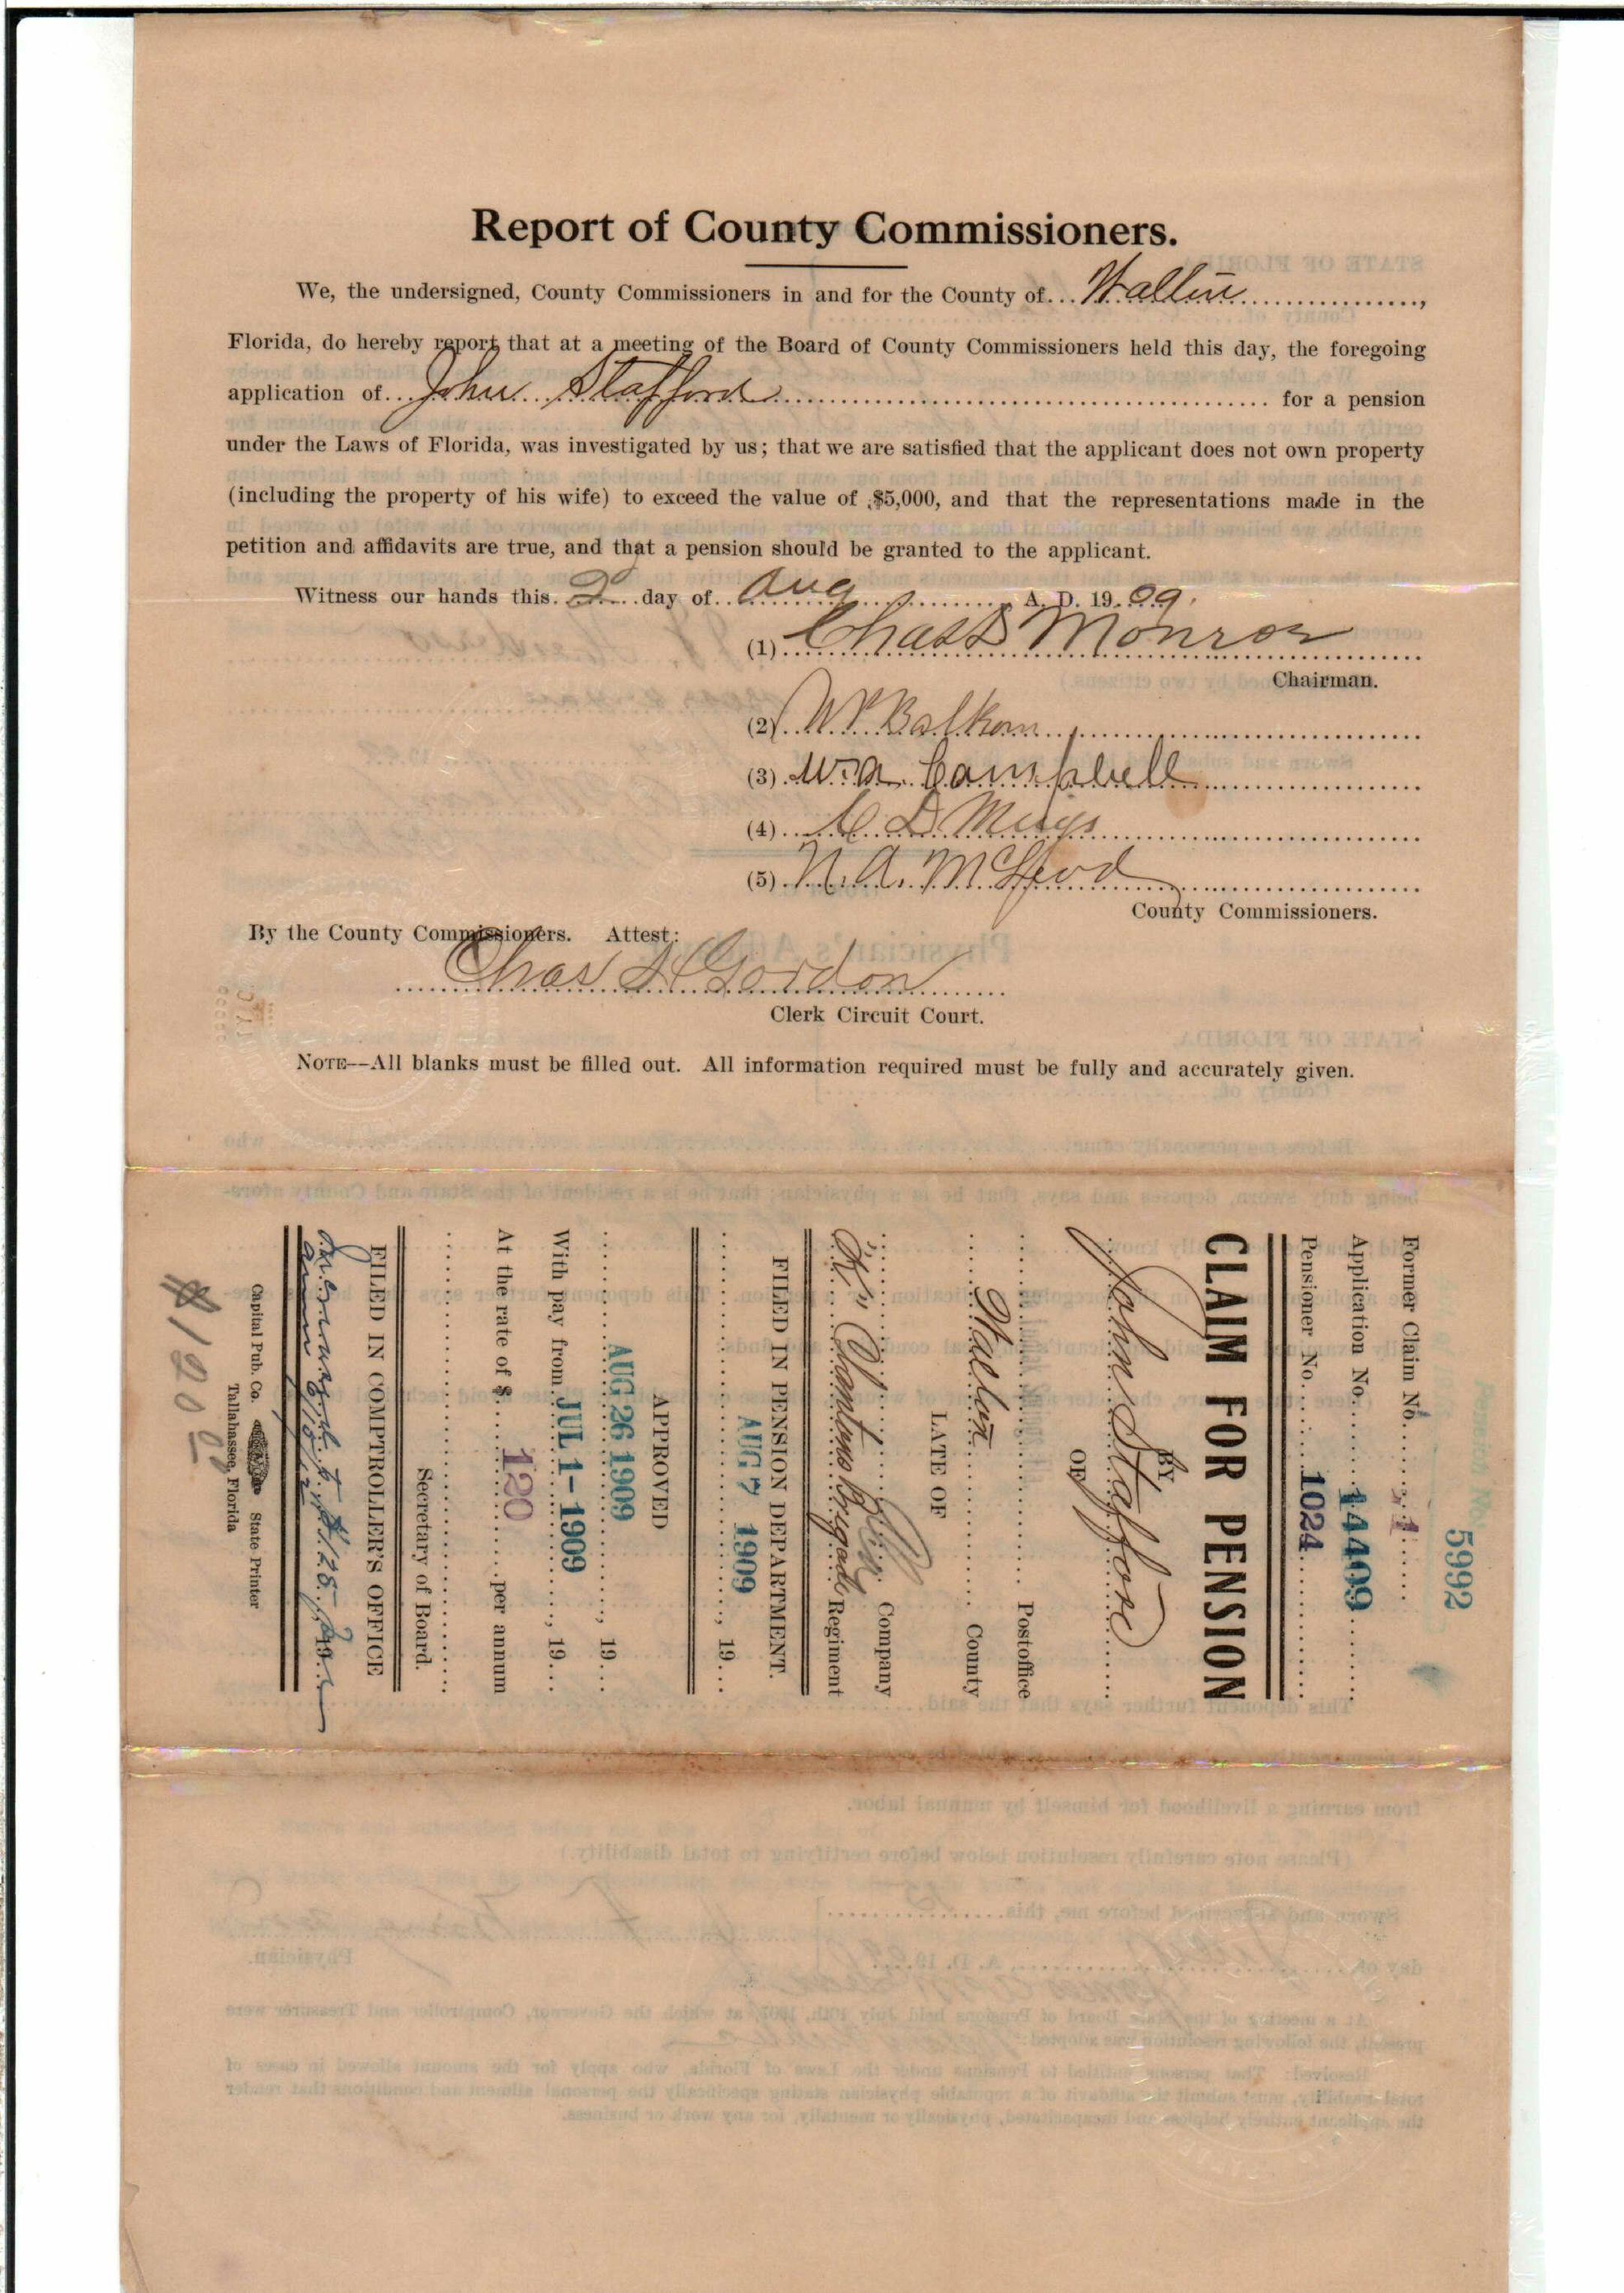 Report of County Commissioners.
We, the undersigned, County Commissioners in and for the County of Walton,
Florida, do hereby report that at a meeting of the Board of County Commissioners held this day, the foregoing
application of John Stafford for a pension
under the Laws of Florida, was investigated by us; that we are satisfied that the applicant does not own property
(including the property of his wife) to exceed the value of $5,000, and that the representations made in the
petition and affidavits are true, and that a pension should be granted to the applicant.
Witness our hands this 2 day of Aug A. D. 1909.
(1) Chas D Monroe
Chairman.
(2) W. Balkom
(3) W. A. Campbell
(4) C D Meigs
(5) N. A. McLeod
County Commissioners.
By the County Commissioners. Attest:
Chas H Gordon
Clerk Circuit Court.
NOTE--All blanks must be filled out. All information required must be fully and accurately given.
5992
Former Claim No.
Application No. 14409
Pensioner No. 1024
CLAIM FOR PENSION
BY
John Stafford
OF
Postoffice
Walton County
LATE OF
Company
"K" Clantons Brigade Regiment
FILED IN PENSION DEPARTMENT.
AUG 7 1909, 19
APPROVED
AUG 26 1909, 19
With pay from JUL 1-1909, 19
At the rate of $ 120 per annum
Secretary of Board.
FILED IN COMPTROLLER'S OFFICE
Increased to $125 per
annum
19
Capital Pub. Co. State Printer
Tallahassee, Florida
$120 00